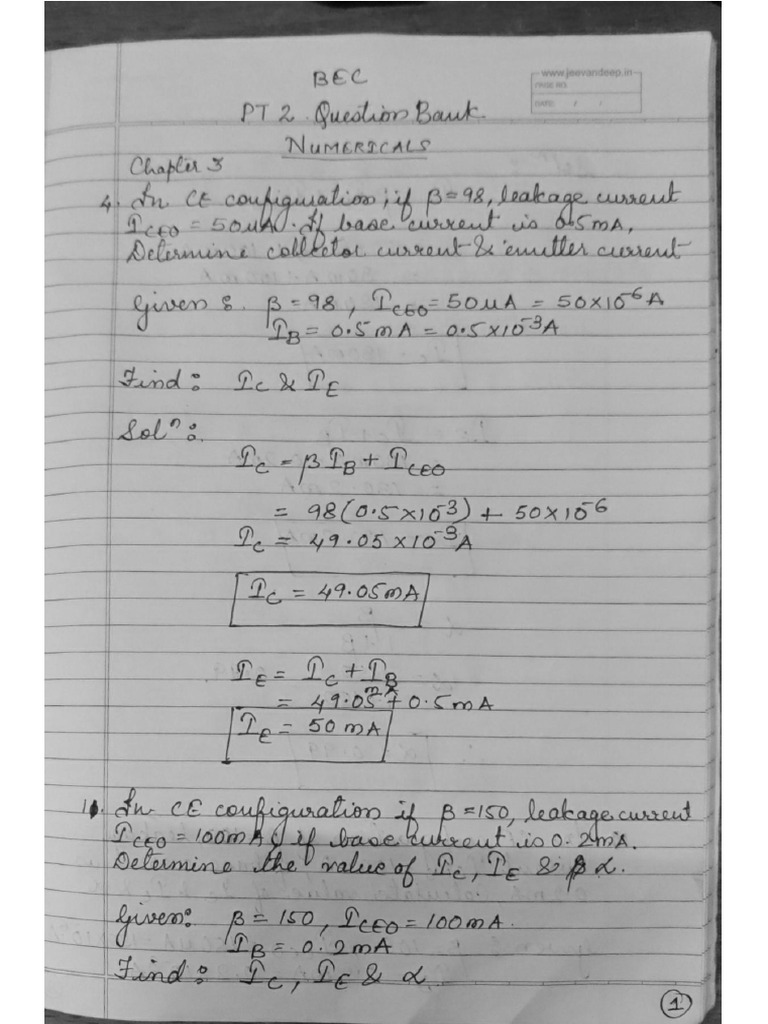 www.jeevandeep.in
PAGE NO.
DATE: / /
BEC
PT 2 Question Bank
NUMERICALS
Chapter 3
4. In CE configuration, if β=98, leakage current
ICEO = 50μA. If base current is 0.5mA,
Determine collector current & emitter current
Given: β=98, ICEO=50μA = 50×10⁻⁶A
IB = 0.5mA = 0.5×10⁻³A
Find: IC & IE
Solⁿ:
IC = βIB + ICEO
= 98(0.5×10⁻³) + 50×10⁻⁶
IC = 49.05×10⁻³A
IC = 49.05mA
IE = IC + IB
= 49.05m + 0.5mA
IE = 50mA
1. In CE configuration if β=150, leakage current
ICEO=100mA, if base current is 0.2mA.
Determine the value of IC, IE & α.
Given: β=150, ICEO=100mA.
IB = 0.2mA
Find: IC, IE & α.
1